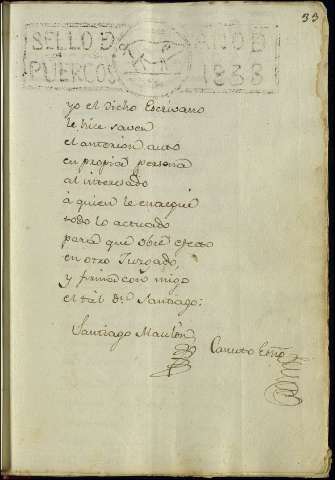 33
SELLO D AÑO D
PUERCOS 1838
yo el dicho Escrivano
le hice saver
el anterior auto
en propia persona
al interesado
à quien le entregué
todo lo actuado
para que obre efecto
en otro Juzgado
y firma con migo
el tal Dn. Santiago:
Santiago Maulon
Canuto Esno